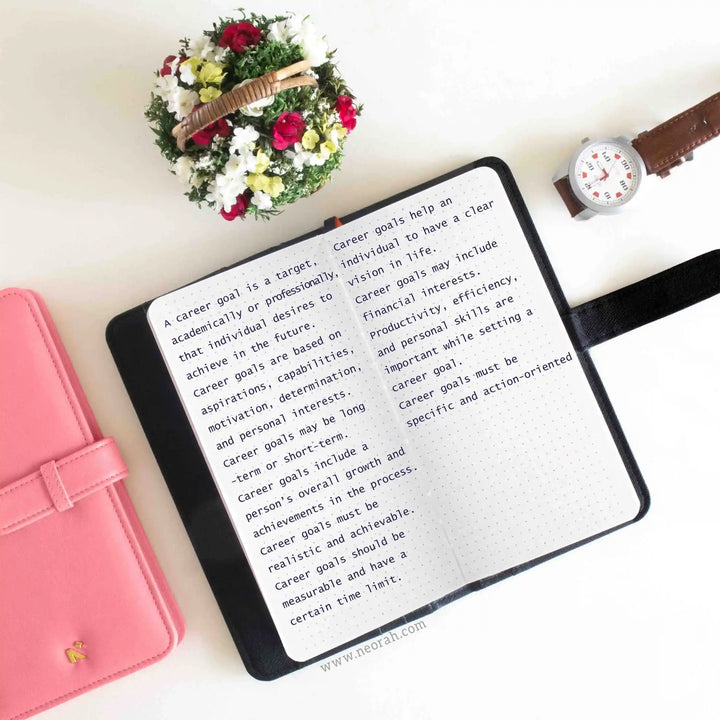 A career goal is a target,
academically or professionally,
that individual desires to
achieve in the future.
Career goals are based on
aspirations, capabilities,
motivation, determination,
and personal interests.
Career goals may be long
-term or short-term.
Career goals include a
person's overall growth and
achievements in the process.
Career goals must be
realistic and achievable.
Career goals should be
measurable and have a
certain time limit.
Career goals help an
individual to have a clear
vision in life.
Career goals may include
financial interests.
productivity, efficiency,
and personal skills are
important while setting a
career goal.
Career goals must be
specific and action-oriented
www.neorah.com